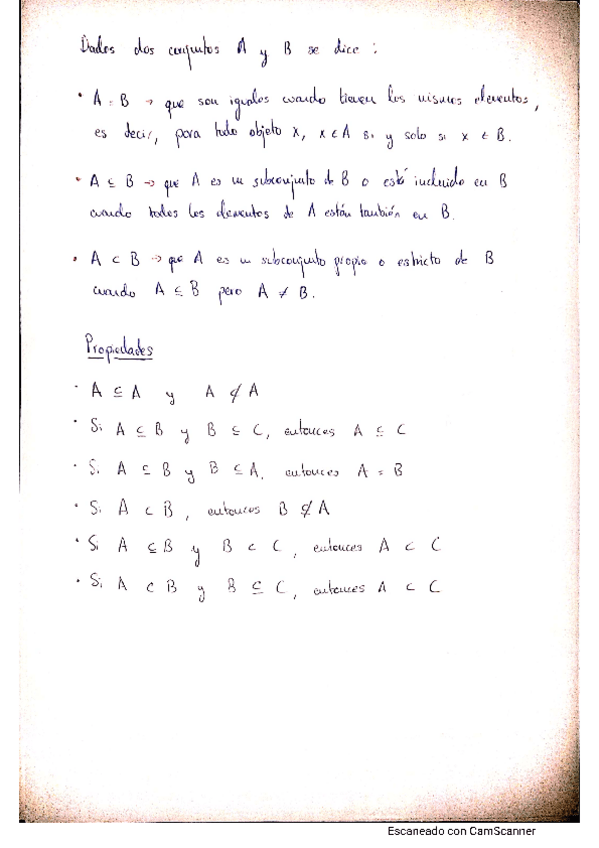 Dados dos conjuntos A y B se dice :
· A = B → que son iguales cuando tienen los mismos elementos,
es decir, para todo objeto x, x ∈ A si y solo si x ∈ B.
· A ⊆ B → que A es un subconjunto de B o está incluido en B
cuando todos los elementos de A están también en B.
· A ⊂ B → que A es un subconjunto propio o estricto de B
cuando A ⊆ B pero A ≠ B.
Propiedades
· A ⊆ A y A ⊄ A
· Si A ⊆ B y B ⊆ C, entonces A ⊆ C
· Si A ⊆ B y B ⊆ A, entonces A = B
· Si A ⊂ B, entonces B ⊄ A
· Si A ⊆ B y B ⊂ C, entonces A ⊂ C
· Si A ⊂ B y B ⊆ C, entonces A ⊂ C
Escaneado con CamScanner